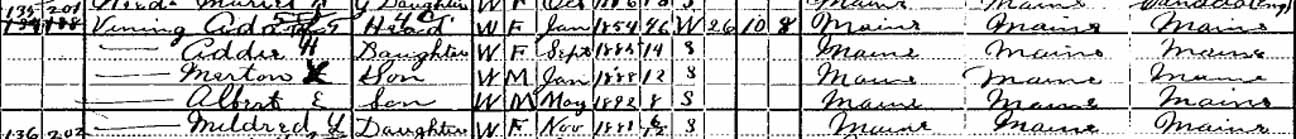 135 201 Marie Daughter W F Oct Maine Maine Canada (Eng)
134 188 Vining Ada Head W F Jan 1854 46 W 26 10 8 Maine Maine Maine
—— Addie H Daughter W F Sept 1885 14 S Maine Maine Maine
—— Merton Son W M Jan 1888 12 S Maine Maine Maine
—— Albert E Son W M May 1892 8 S Maine Maine Maine
136 202 —— Mildred Y Daughter W F Nov 6/12 S Maine Maine Maine